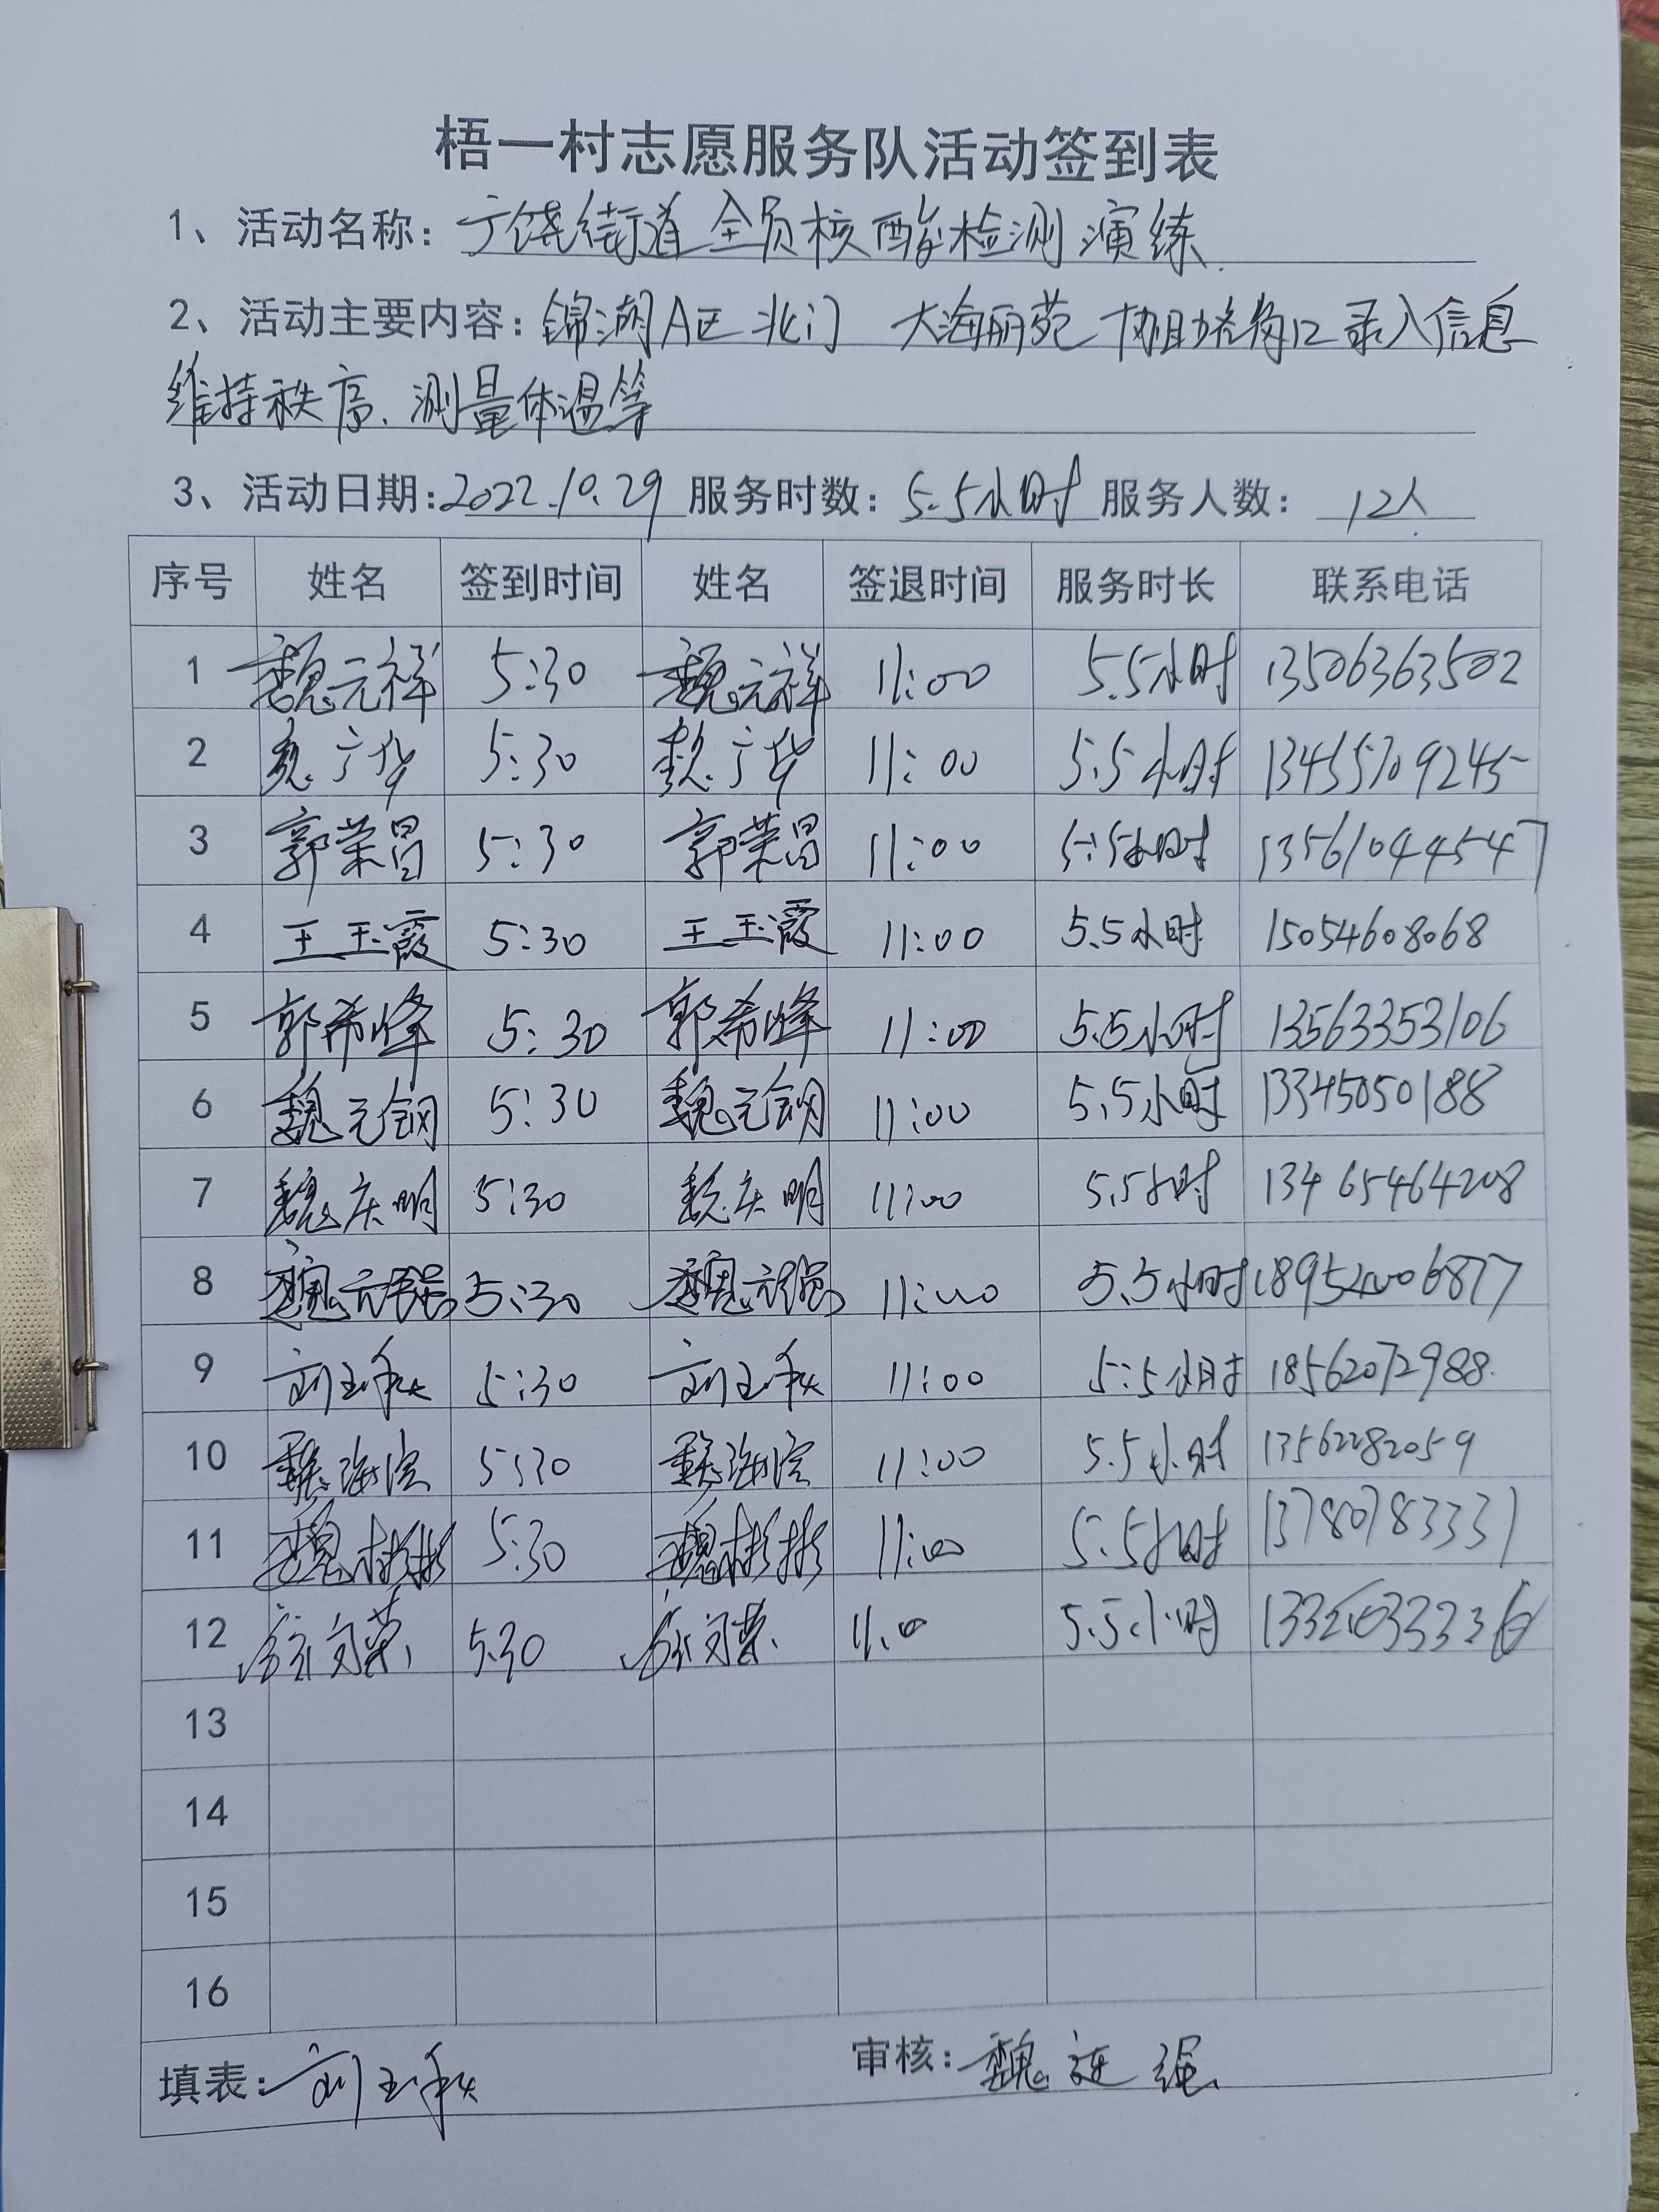 梧一村志愿服务队活动签到表
1、活动名称：广饶街道全员核酸检测演练
2、活动主要内容：锦湖A区北门 大海丽苑 协助卡口录入信息
维持秩序、测量体温等
3、活动日期：2022.10.29 服务时数：5.5小时 服务人数：12人
序号 姓名 签到时间 姓名 签退时间 服务时长 联系电话
1 魏元祥 5:30 魏元祥 11:00 5.5小时 13506363502
2 魏广华 5:30 魏广华 11:00 5.5小时 13455709245
3 郭荣昌 5:30 郭荣昌 11:00 5.5小时 13561044547
4 王玉霞 5:30 王玉霞 11:00 5.5小时 15054608068
5 郭希峰 5:30 郭希峰 11:00 5.5小时 13563353106
6 魏元钢 5:30 魏元钢 11:00 5.5小时 13345050188
7 魏庆明 5:30 魏庆明 11:00 5.5小时 13465464208
8 魏元强 5:30 魏元强 11:00 5.5小时
9 刘玉秋 5:30 刘玉秋 11:00 5:5小时 18562072988
10 魏海滨 5:30 魏海滨 11:00 5.5小时 13562282059
11 魏彬彬 5:30 魏彬彬 11:00 5.5小时 13780783331
12 5:30 11:00 5.5小时
13
14
15
16
填表：刘玉秋 审核：魏连强